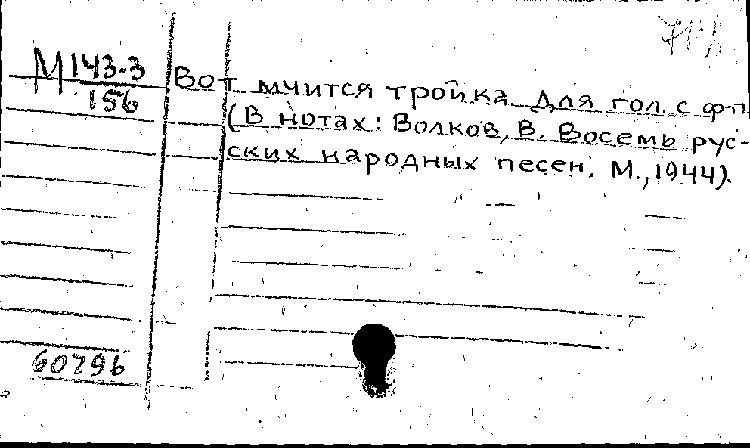 М 143-3
156
Вот мчится тройка. Для гол. с ф-п.
(В нотах: Волков, В. Восемь рус-
ских народных песен. М., 1944).
60296